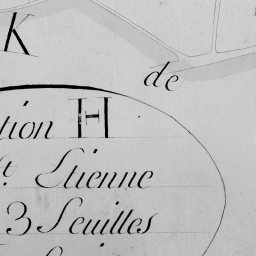 K
de
tion H
t. Etienne
3 Feuilles